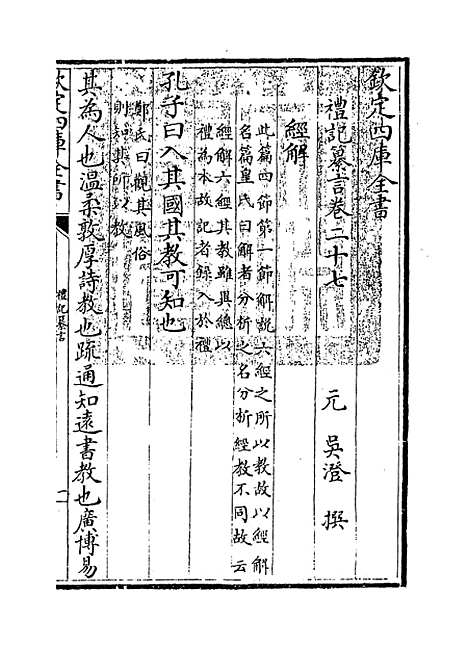 欽定四庫全書
禮記纂言卷二十七
元 吳澄 撰
經解
此篇四節第一節解說六經之所以教故以經解
名篇皇氏曰解者分析之名分析經教不同故云
經解六經其教雖異總以
禮為本故記者錄入於禮
孔子曰入其國其教可知也
鄭氏曰觀其風俗
則知其所以教
其為人也溫柔敦厚詩教也疏通知遠書教也廣博易
欽定四庫全書
禮記纂言